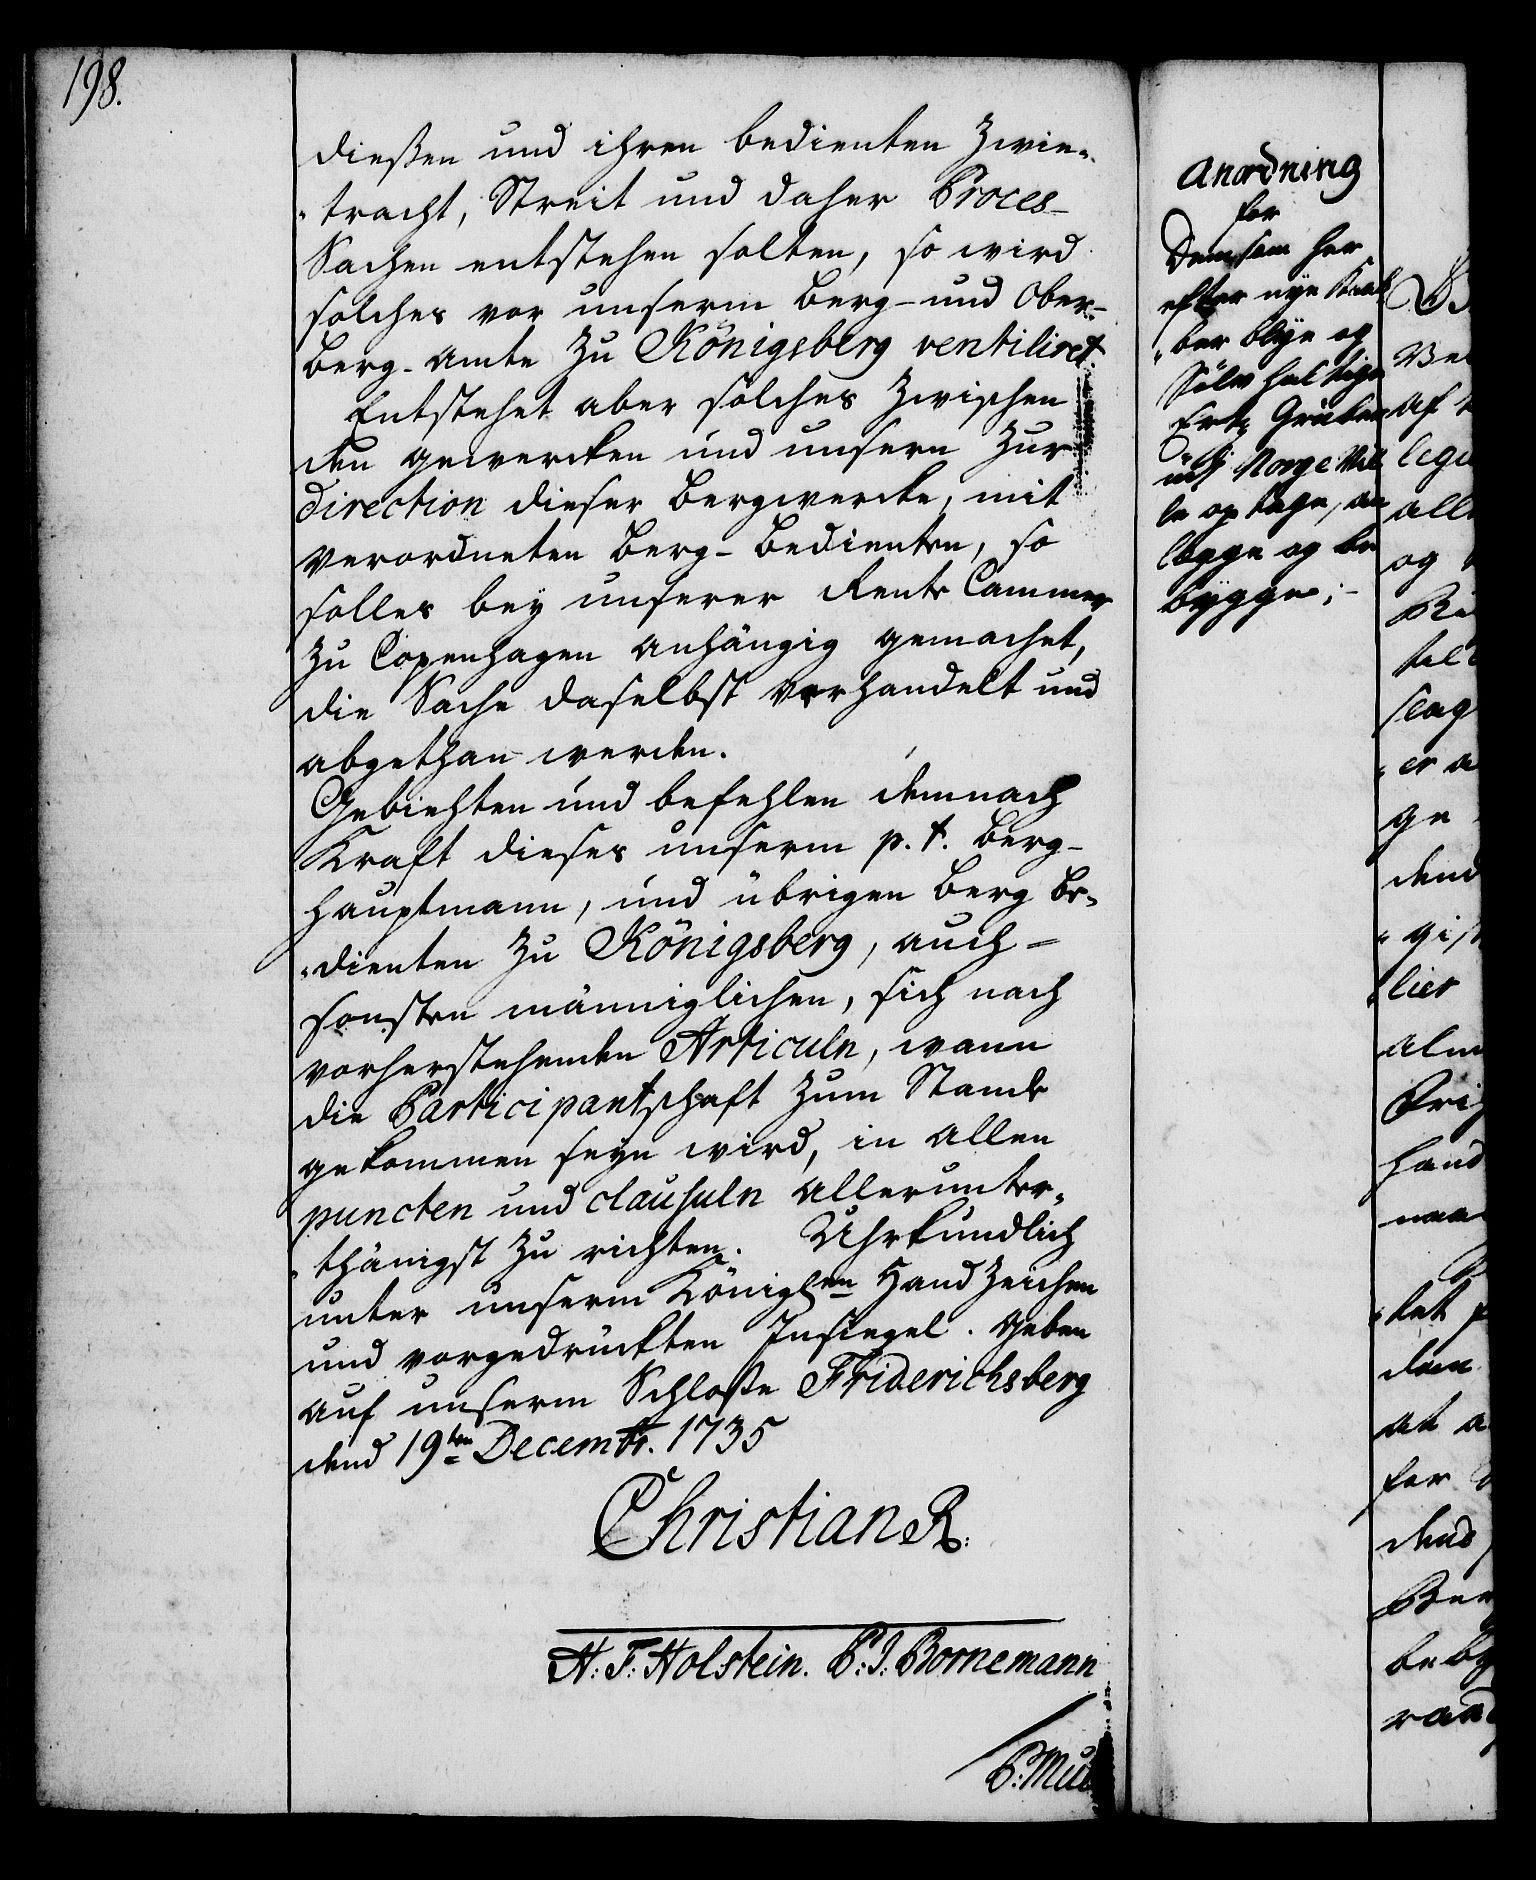 198.
dießen und ihren bedienten Zwie„
„tracht, Streit und daher Proces-
Sachen entstehen solten, so wird
solches vor unserm Berg- und Ober-
Berg-Amte zu Königsberg ventiliret.
Entstehet aber solches zwischen
den gewercken und unsern zur
direction dieser Bergwercke, mit
verordneten Berg-bedienten, so
solles bey unserer Rente Cammer
zu Copenhagen anhängig gemachet,
die Sache daselbst verhandelt und
abgethan werden.
Gebiehten und befehlen demnach
Kraft dieses unserm p. t. Berg-
hauptmann, und übrigen Berg Be„
„dienten zu Königsberg, auch
sonsten männiglichen, sich nach
vorherstehenden Articuln, wann
die Participantschaft zum Stande
gekommen seyn wird, in allen
puncten und clausuln allerunter„
„thänigst zu richten. Uhrkundlich
unter unserm Königl.en Hand Zeichen
und vorgedruckten Insiegel. Geben
auf unserm Schloße Friderichsberg
dend 19ten Decembr. 1735
Christian R.
H: F: Holstein. P: J: Bornemann
P: Mul
Anordning
for
Dem som her
efter nye Kaab
„ber blye og
Sölv haltige
Ertz Gruber
udi Norge Vil
le optage, an
legge og be
bygge;
Ve
af
legu
all
og
til
slag
„er a
ge
dend
„gis
lier
alm
hand
naa
„tet
den
at a
for
dend
Ber
beby
raad